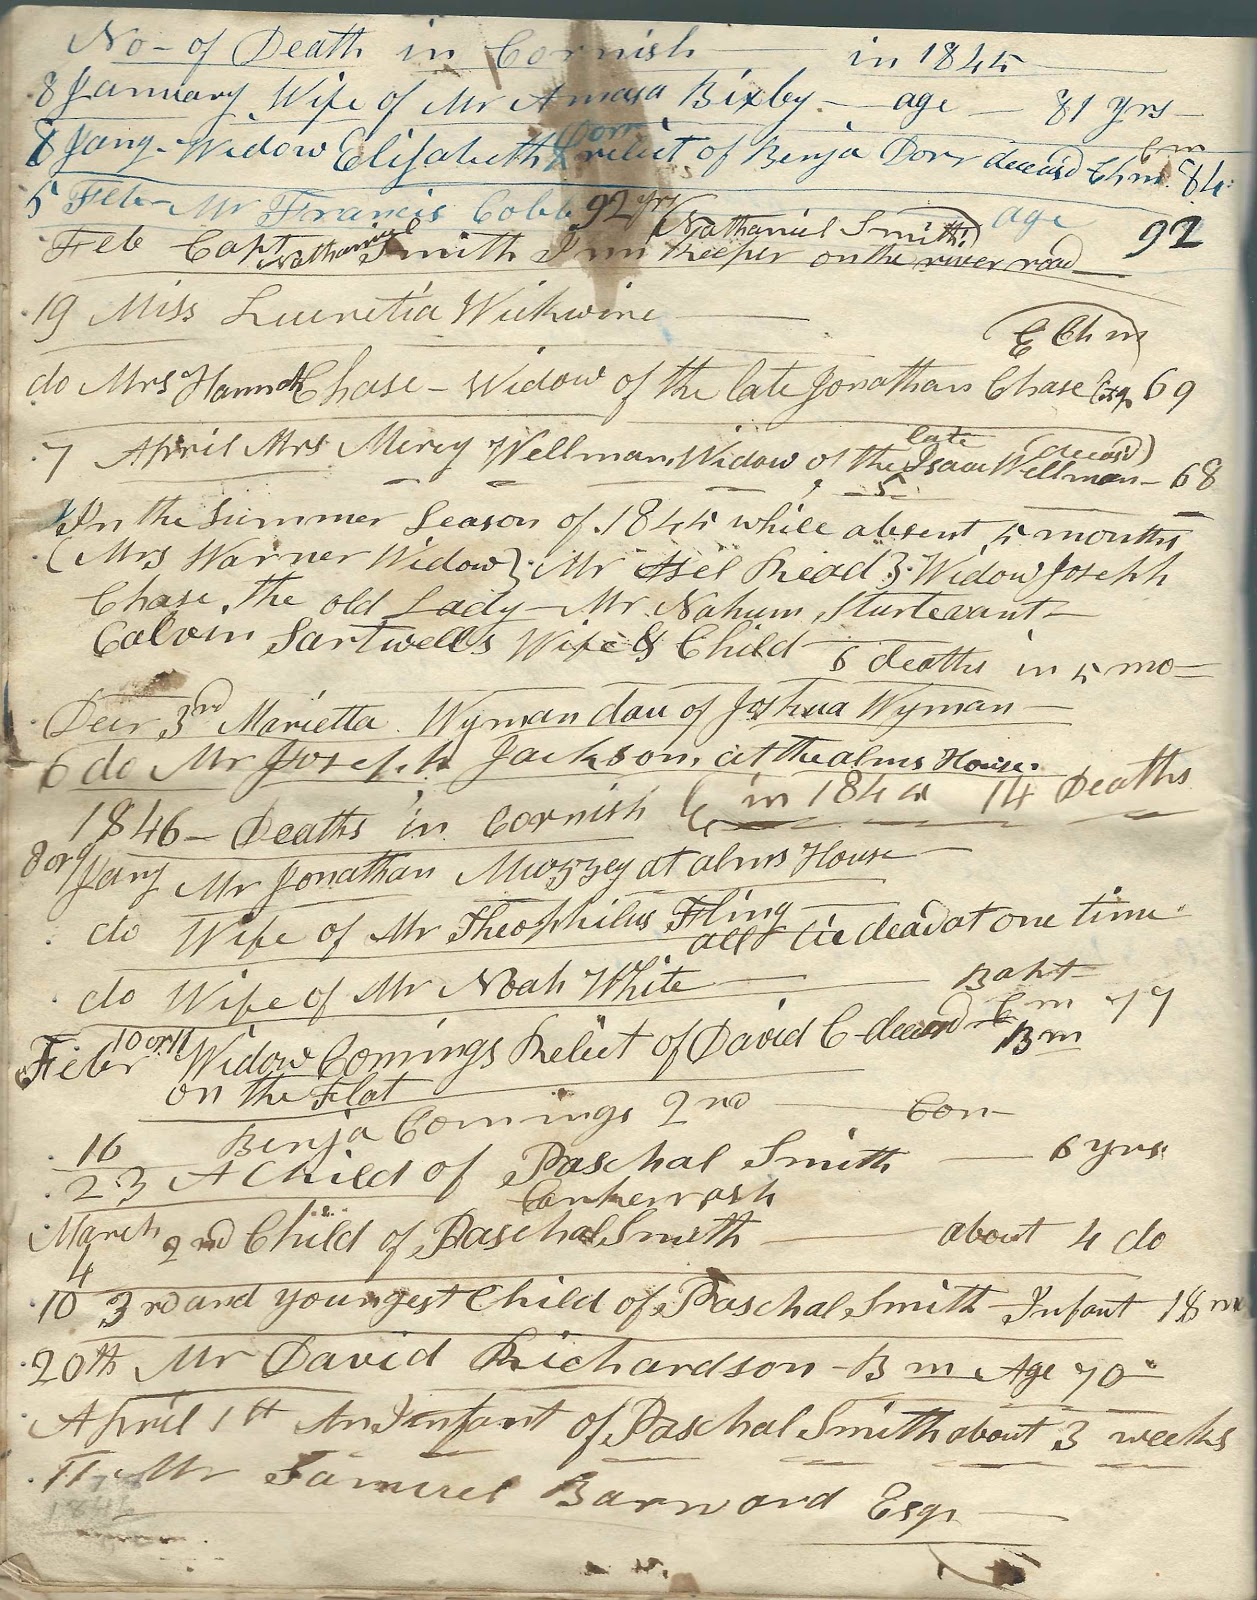 No- of Death in Cornish — in 1845
8 January Wife of Mr Amasa Bixby — age — 81 yrs —
8 Jany - Widow Elisabeth Dorr relict of Benja Dorr deceasd Chm. 84
5 Feber Mr Francis Cobb 92 yrs age 92
Feb Capt Nathaniel Smith Inn Keeper on the river road (Nathaniel Smith)
19 Miss Lucretia Wickwire
E Ch m
do Mrs Hannah Chase - Widow of the late Jonathan Chase Esq. 69
7 April Mrs Mercy Wellman, Widow of the late Isaac Wellman (deceasd) - 68
In the Summer Season of 1845 while absent 5 months
(Mrs Warner Widow) Mr Asel Read } Widow Joseph
Chase, the old Lady — Mr Nahum Sturtevant —
Calvin Sartwells Wife & Child 6 deaths in 5 mo —
Decr 3rd Marietta Wyman dau of Joshua Wyman —
6 do Mr Joseph Jackson, at the alms House.
in 1845 14 Deaths
1846 - Deaths in Cornish
8 or 9 Jany Mr Jonathan Muzzey at alms House —
do Wife of Mr Theophilus Fling
all lie dead at one time
do Wife of Mr Noah White — Bapt
Feber 10 or 11 Widow Comings Relict of David C - deceasd Bm 77
on the Flat
16 Benja Comings 2nd — Con —
23 A Child of Paschal Smith — 6 yrs
Cankerrash
March 4 2nd Child of Paschal Smith — about 4 do
10 3rd and youngest Child of Paschal Smith Infant 18 m
20th Mr David Richardson - B m Age 70
April 1st An Infant of Paschal Smith about 3 weeks
11 Mr Samuel Barnard Esqr
1846